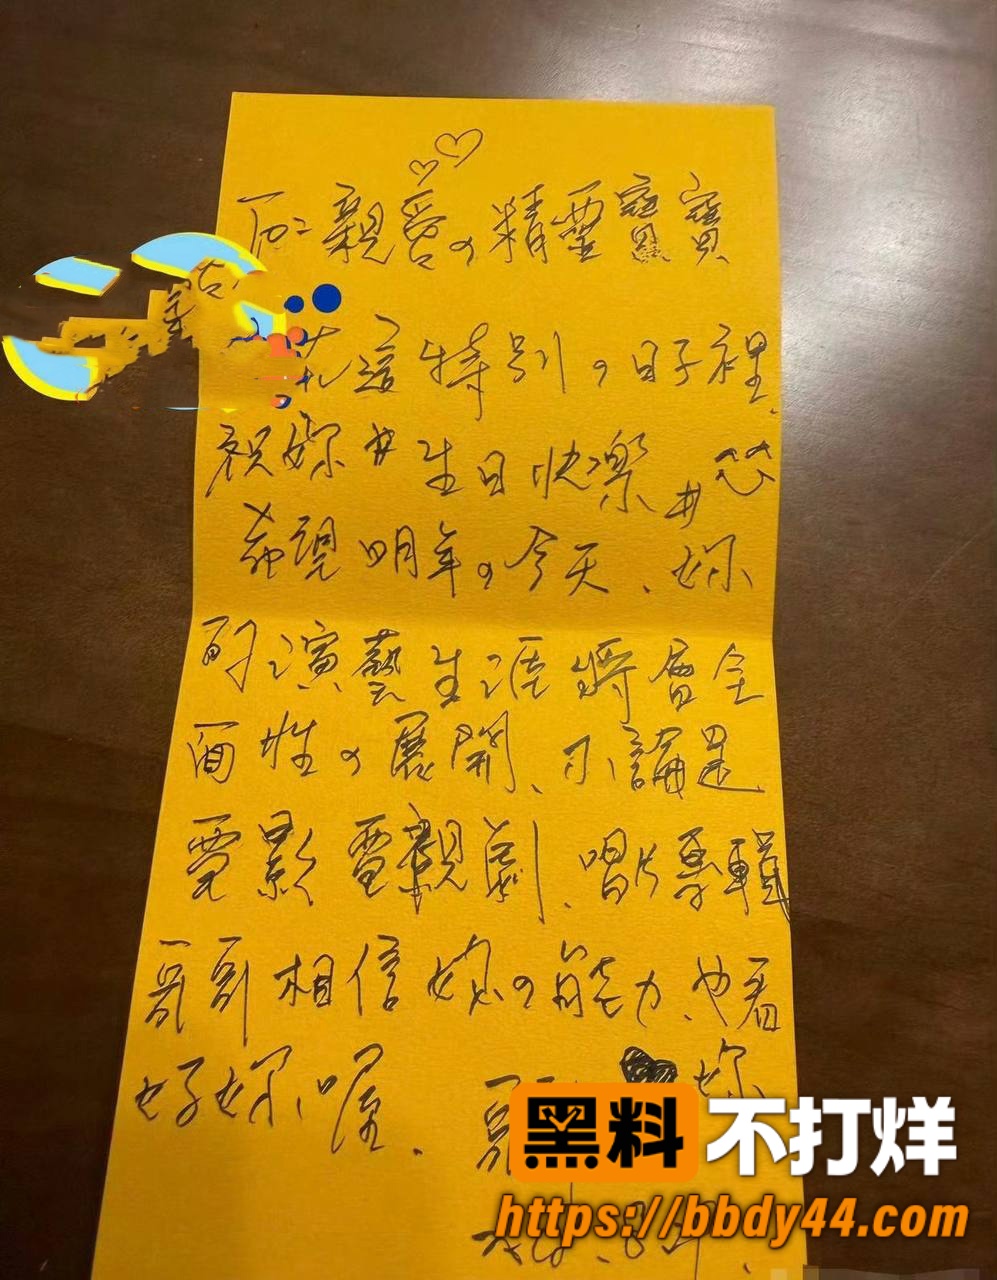 親愛の精靈寶寶
在這特別の日子裡、
祝妳#生日快樂#
希望明年の今天、妳
的演藝生涯將會全
面性の展開、不論是、
電影電視劇、唱片專輯
哥哥相信妳の能力、也看
好妳喔、
妳
黑料不打烊
https://bbdy44.com